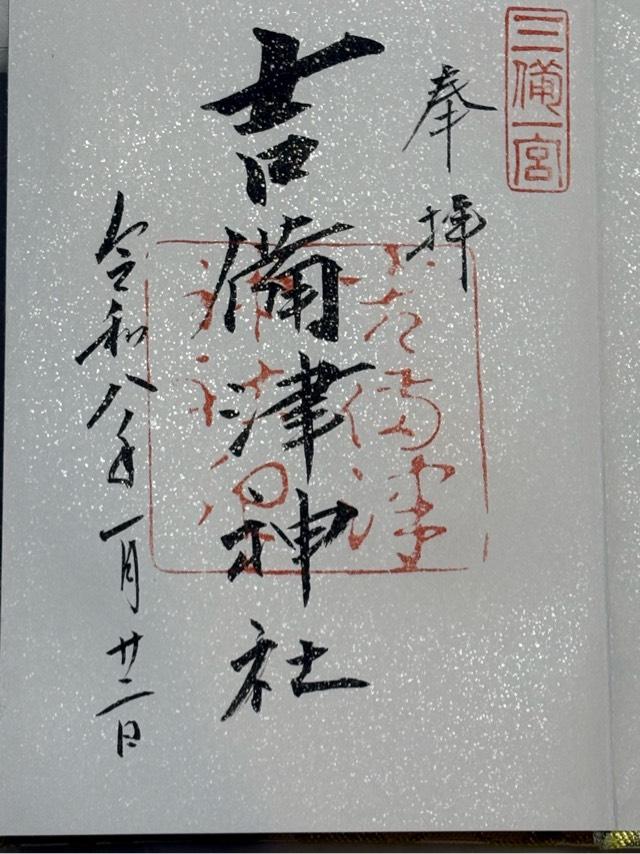 三備一宮
奉拝
吉備津神社
令和八年一月廿二日